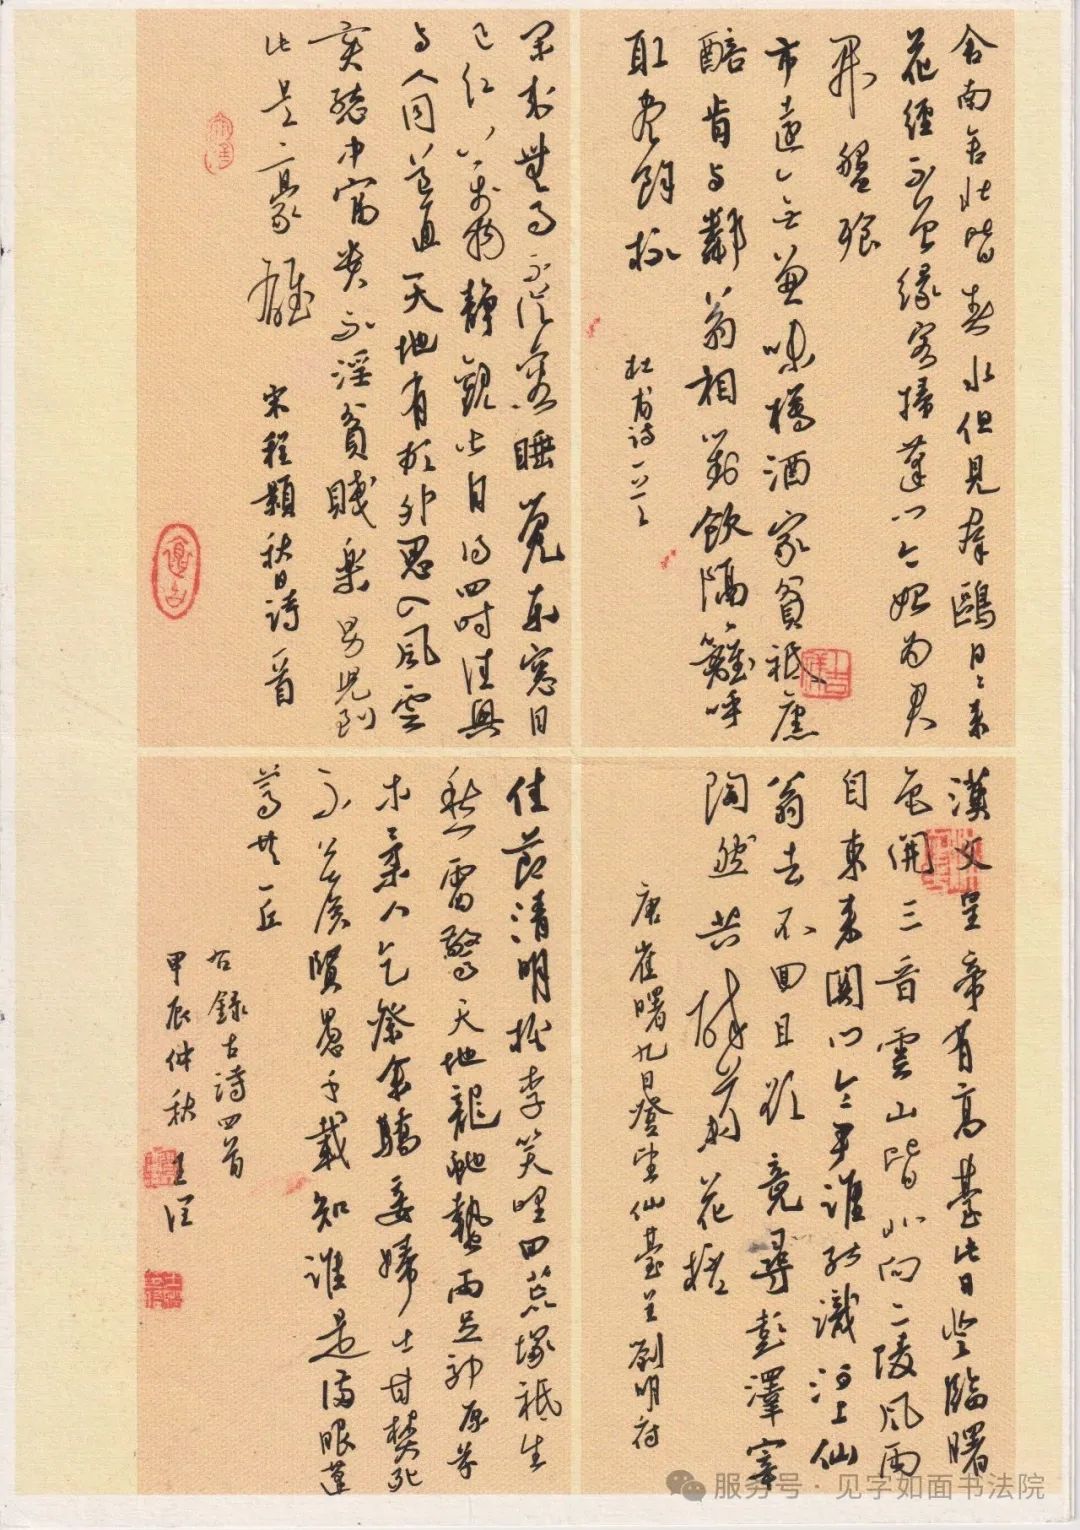 舍南舍北皆春水但見群鷗日々來
花徑不曾緣客掃蓬門今始為君
開盤飧
市遠無兼味樽酒家貧祗舊
醅肯與鄰翁相對飲隔籬呼
取盡餘杯
杜甫詩一首
閑來無事不從容睡覺東窗日
已紅萬物靜觀皆自得四時佳興
與人同道通天地有形外思入風雲
變態中富貴不淫貧賤樂男兒到
此是豪雄
宋程顥秋日詩一首
漢文皇帝有高臺此日登臨曙
色開三晉雲山皆北向二陵風雨
自東來關門令尹誰能識河上仙
翁去不回且欲竟尋彭澤宰
陶然共醉菊花杯
唐崔曙九日登望仙臺呈劉明府
佳節清明桃李笑野田荒塚祗生
愁雷驚天地龍蛇蟄雨足郊原草
木柔人乞祭餘驕妾婦士甘焚死
不公侯賢愚千載知誰是滿眼蓬
蒿共一丘
右錄古詩四首
甲辰仲秋 王
服务号·见字如面书法院